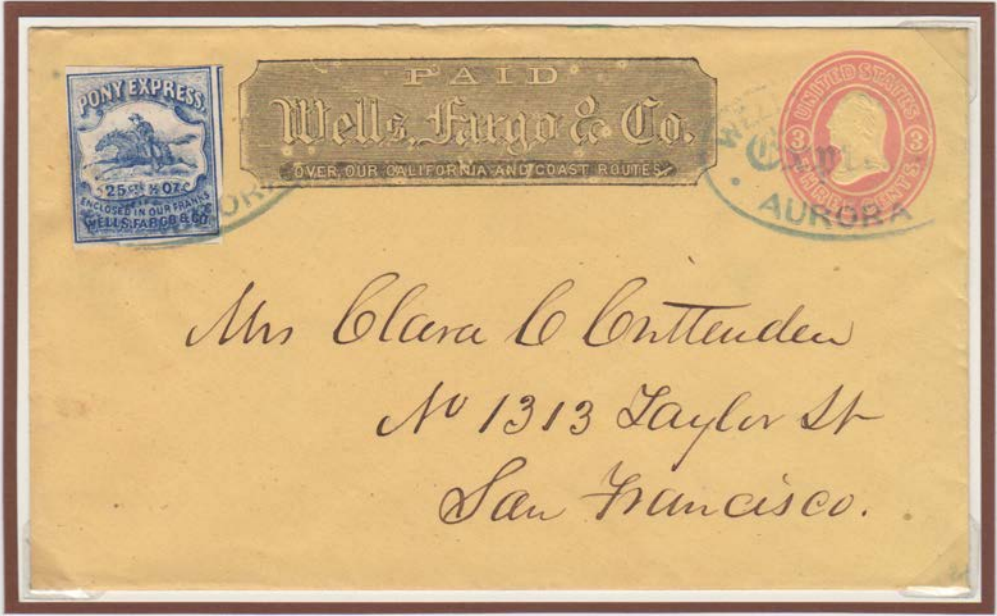 PONY EXPRESS.
25 Cts ½ OZ.
ENCLOSED IN OUR FRANKS
WELLS, FARGO & CO.
PAID
Wells, Fargo & Co.
OVER OUR CALIFORNIA AND COAST ROUTES
UNITED STATES
3 3
THREE CENTS
AURORA
Mrs Clara C Crittenden
No 1313 Taylor St
San Francisco.